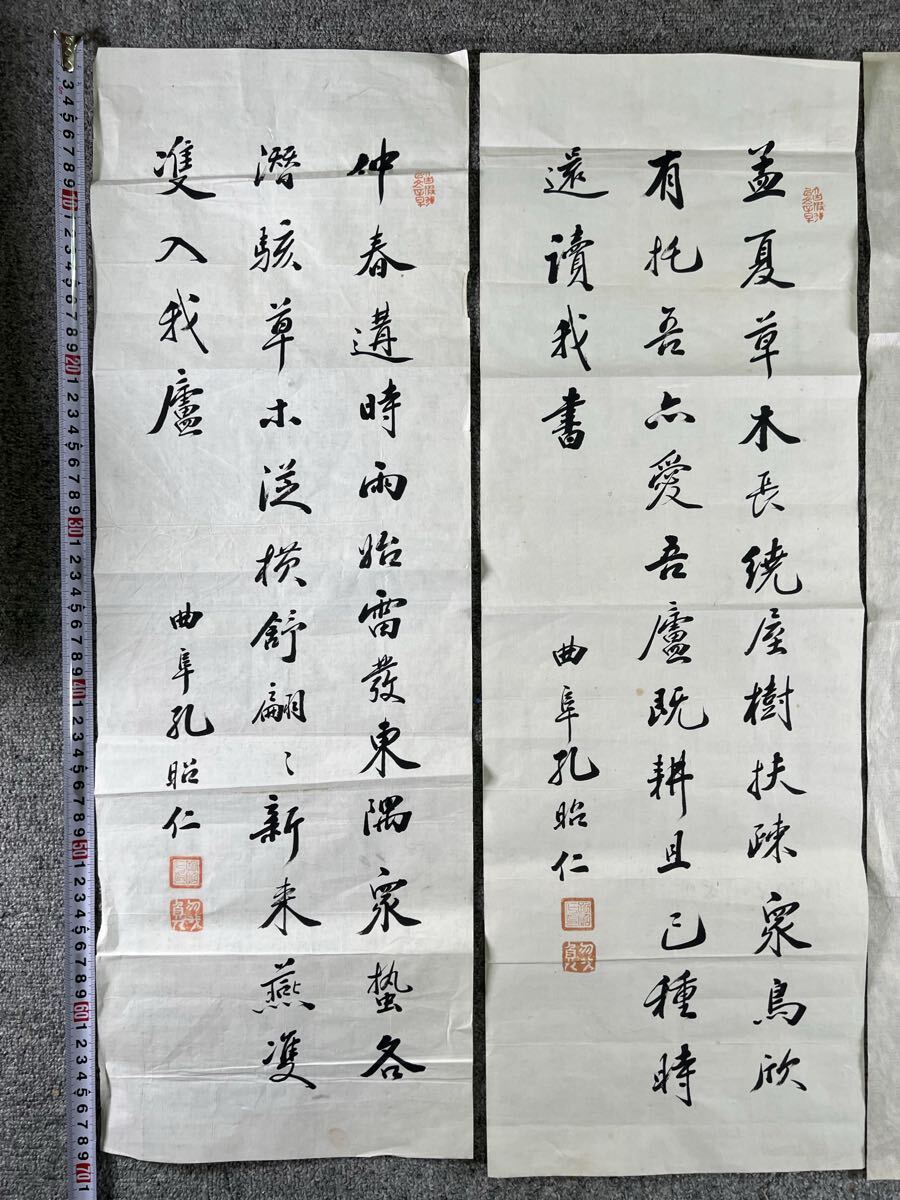 孟夏草木長繞屋樹扶疎衆鳥欣
有托吾亦愛吾廬既耕且已種時
還讀我書
曲阜孔昭仁
仲春遘時雨始雷發東隅衆蟄各
潛駭草木從横舒翩〻新来燕雙
雙入我廬
曲阜孔昭仁
3 4 5 6 7 8 9 10 1 2 3 4 5 6 7 8 9 20 1 2 3 4 5 6 7 8 9 30 1 2 3 4 5 6 7 8 9 40 1 2 3 4 5 6 7 8 9 50 1 2 3 4 5 6 7 8 9 60 1 2 3 4 5 6 7 8 9 70 1